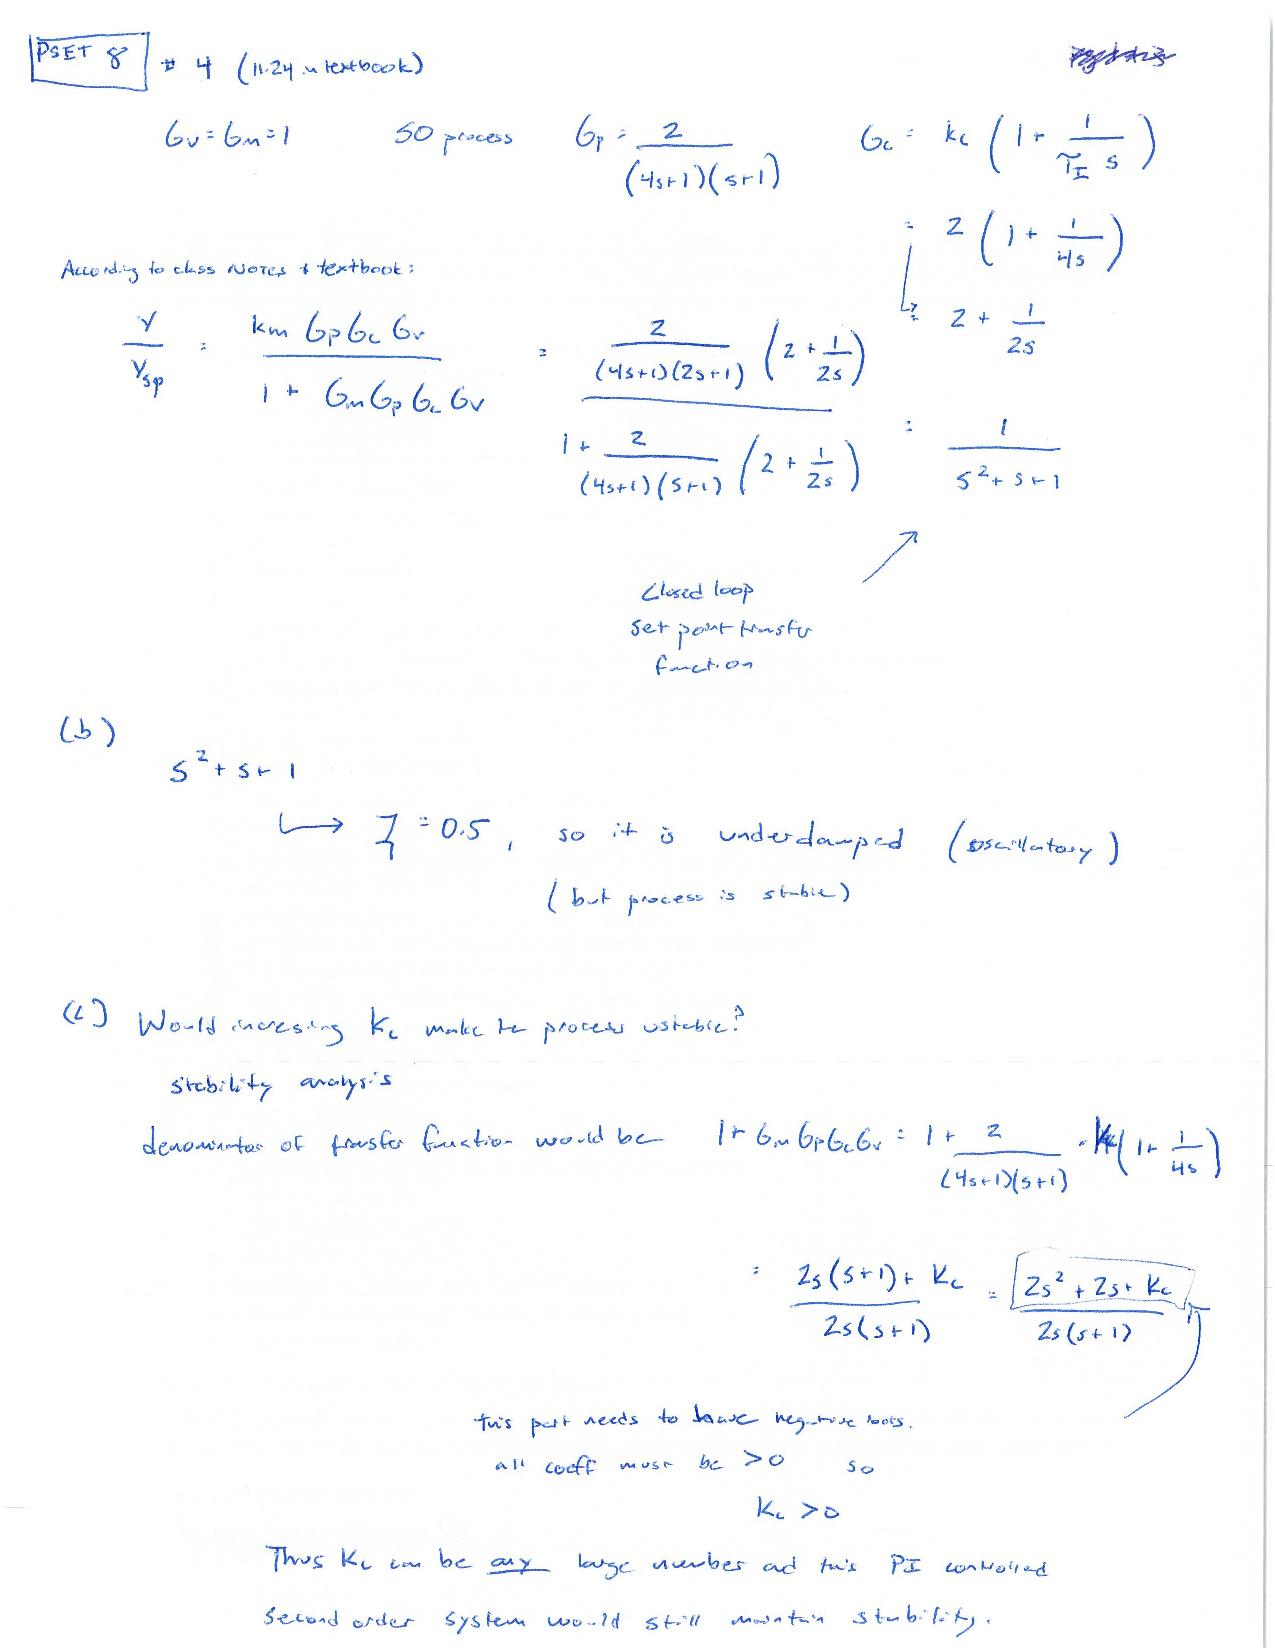 PSET 8 # 4 (11.24 in textbook)
Gv = Gm = 1 SO process Gp = 2 / (4s+1)(s+1) Gc = kc (1 + 1 / τI s)
= 2 (1 + 1/4s)
According to class NOTES + textbook:
= 2 + 1/2s
Y / Ysp = km Gp Gc Gv / 1 + Gm Gp Gc Gv = 2 / (4s+1)(2s+1) (2 + 1/2s) / 1 + 2 / (4s+1)(s+1) (2 + 1/2s) = 1 / s² + s + 1
Closed loop
set point transfer
function
(b)
s² + s + 1
→ ζ = 0.5, so it is underdamped (oscillatory)
(but process is stable)
(c) Would incresing Kc make the process ustable?
stability analysis
denominator of transfer function would be 1 + Gm Gp Gc Gv = 1 + 2 / (4s+1)(s+1) · Kc (1 + 1/4s)
= 2s(s+1) + Kc / 2s(s+1) = 2s² + 2s + Kc / 2s(s+1)
this part needs to have negative roots.
all coeff must be >0 so
Kc >0
Thus Kc can be any large number and this PI controlled
second order system would still maintain stability.